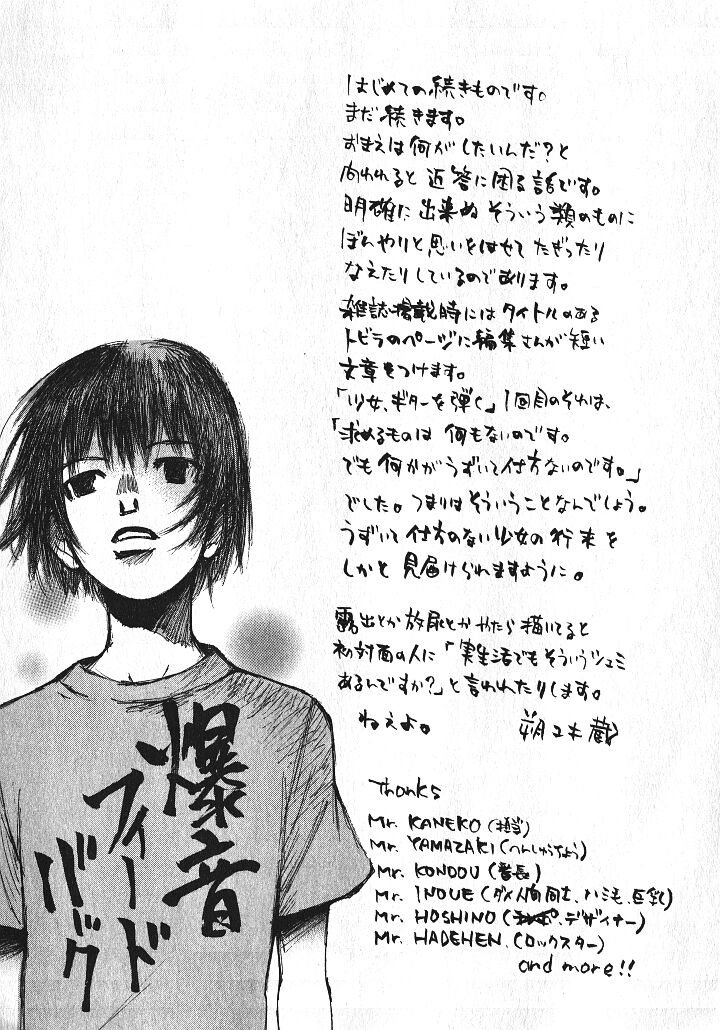 はじめての続きものです。
まだ続きます。
おまえは何がしたいんだ?と
問われると返答に困る話です。
明確に出来ぬそういう類のものに
ぼんやりと思いをはせてたぎったり
なえたりしているのであります。
雑誌掲載時にはタイトルのある
トビラのページに編集さんが短い
文章をつけます。
「少女、ギターを弾く」1回目のそれは、
「求めるものは何もないのです。
でも何かがうずいて仕方ないのです。」
でした。つまりはそういうことなんでしょう。
うずいて仕方のない少女の行末を
しかと見届けられますように。
露出とか放尿とかやたら描いてると
初対面の人に「実生活でもそういうシュミ
あるんですか?」と言われたりします。
ねぇよ。 朔ユキ蔵
Thanks
Mr. KANEKO (担当)
Mr. YAMAZAKI (へんしゅうちょう)
Mr. KONDOU (番長)
Mr. INOUE (ダメ人間同士、ハミ毛、巨乳)
Mr. HOSHINO (デザイナー)
Mr. HADEHEN (ロックスター)
and more!!
爆音
フィード
バック